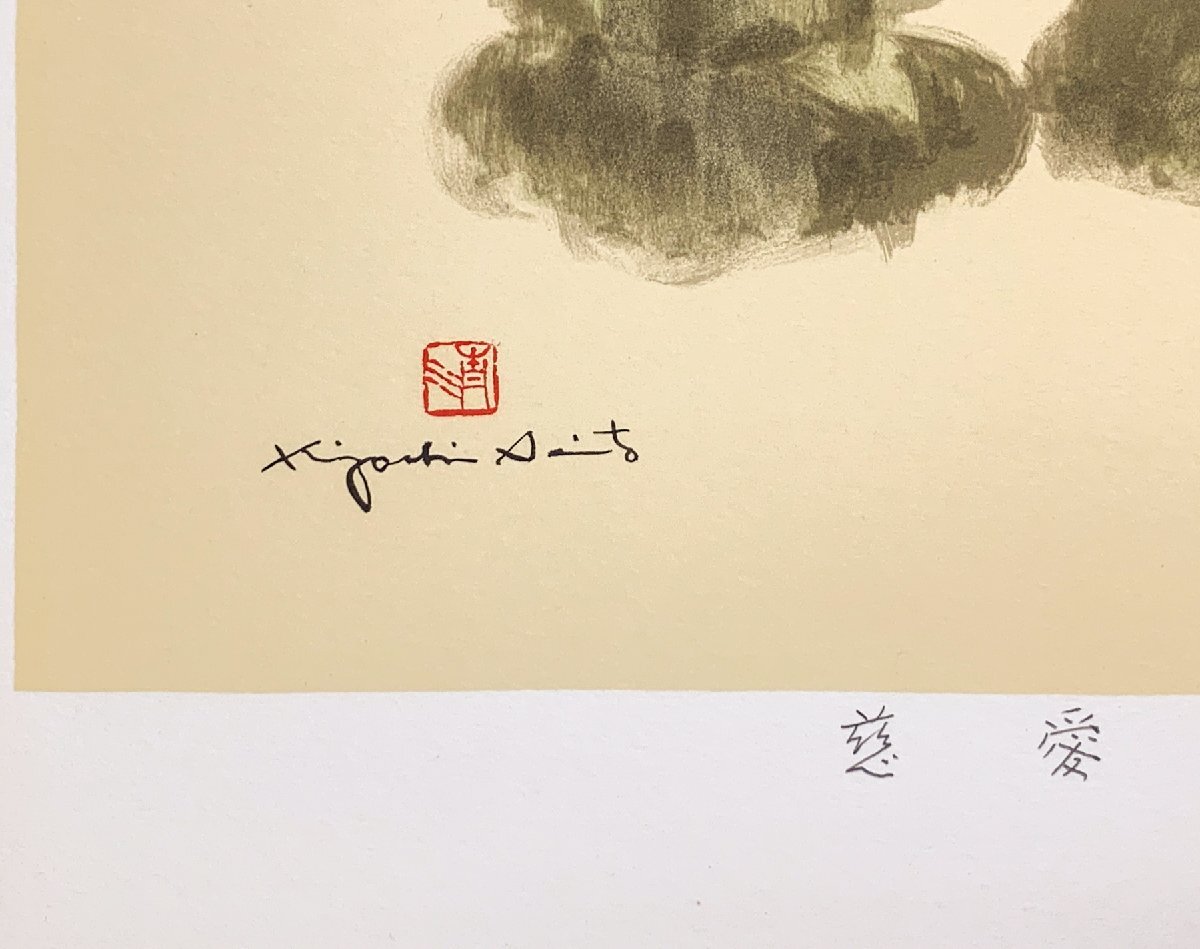 清
Kiyoshi Saito
慈 愛